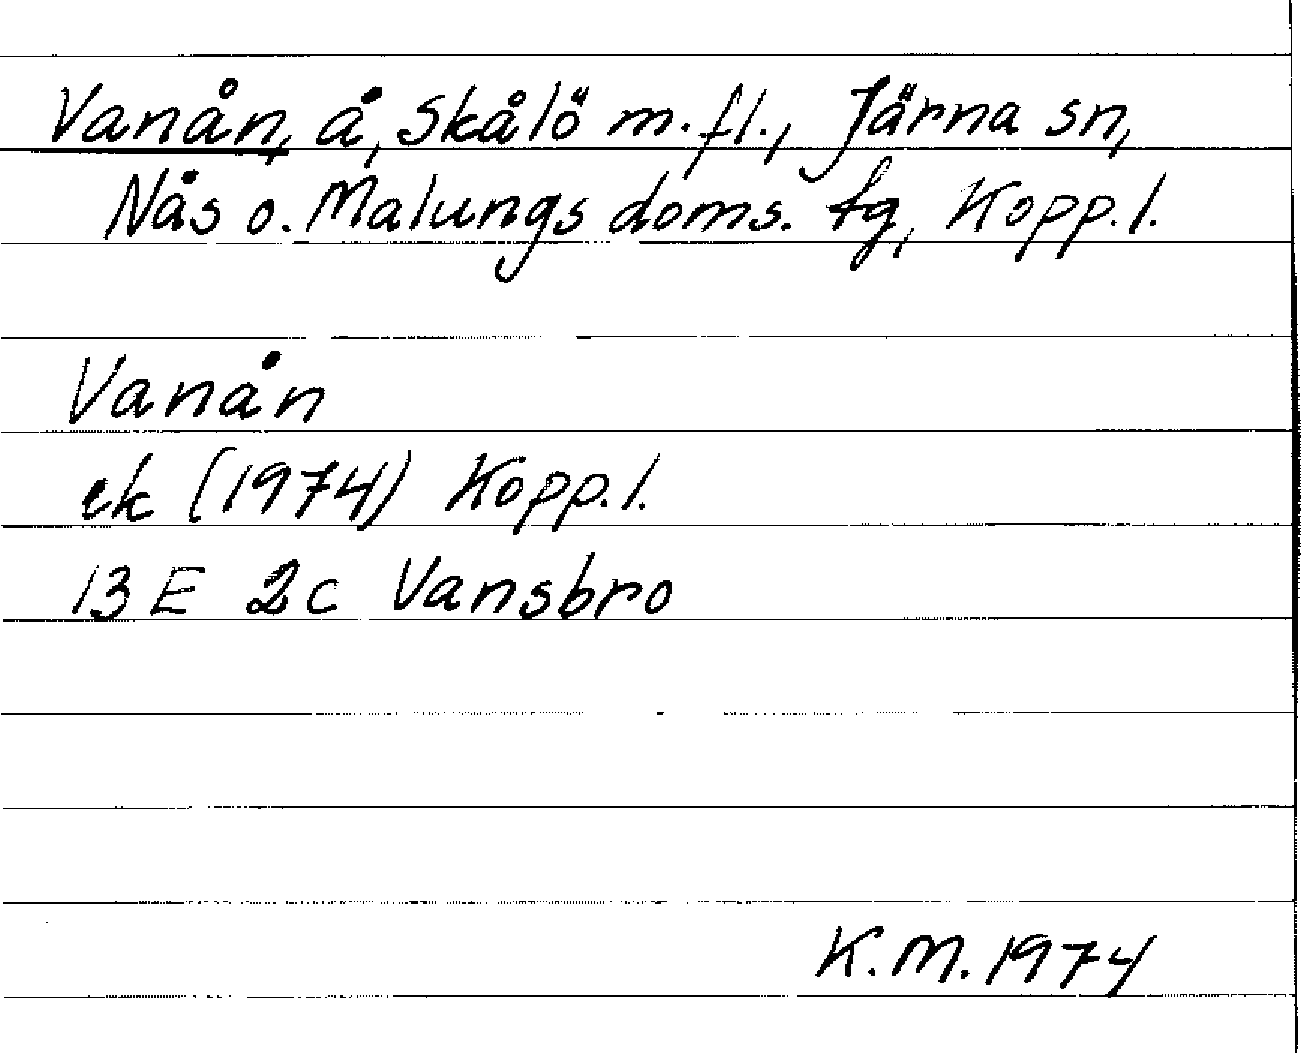 Vanån, å, Skålö m.fl., Järna sn,
Nås o. Malungs doms. tg, Kopp.l.
Vanån
ek (1974) Kopp.l.
13E 2c Vansbro
K.M. 1974